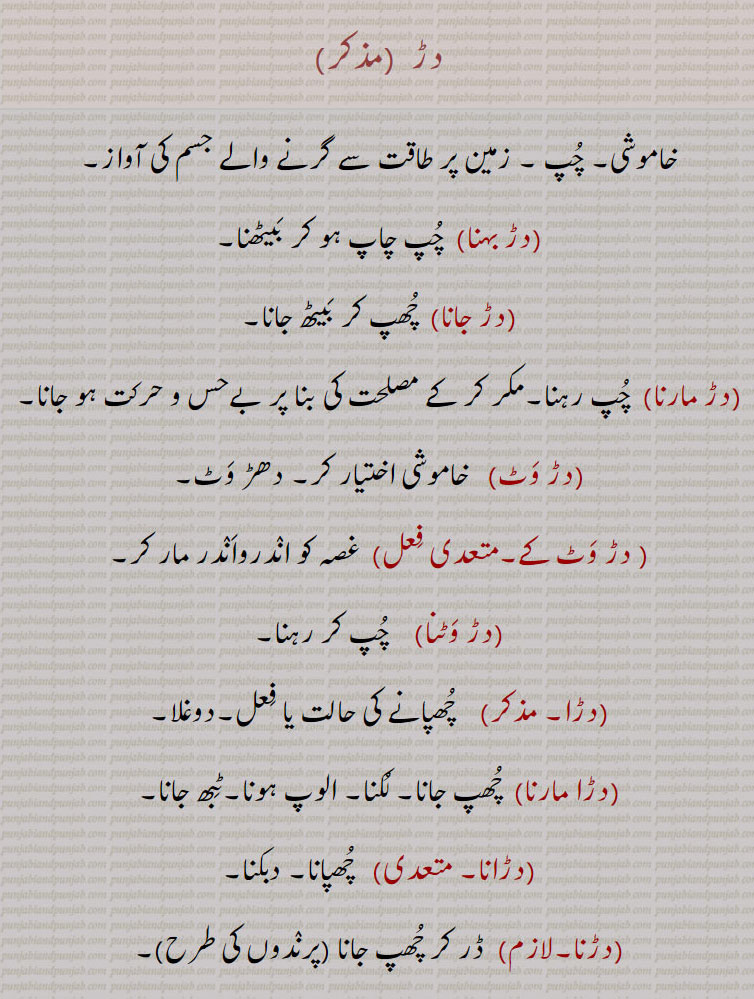 دڑ (مذکر)
خاموشی۔ چُپ ۔ زمین پر طاقت سے گرنے والے جسم کی آواز۔
(دڑ بہنا) چُپ چاپ ہو کر بَیٹھنا۔
(دڑ جانا) چُھپ کر بَیٹھ جانا۔
(دڑ مارنا) چُپ رہنا۔مکر کر کے مصلحت کی بنا پر بےحس و حرکت ہو جانا۔
(دڑ وَٹ) خاموشی اختیار کر۔ دھڑ وَٹ۔
( دڑ وَٹ کے۔متعدی فِعل) غصہ کو انْدرواَنْدر مار کر۔
(دڑ وَٹنا) چُپ کر رہنا۔
(دڑا۔ مذکر) چُھپانے کی حالت یا فِعل۔دوغلا۔
(دڑا مارنا) چُھپ جانا۔ لُکنا۔ الوپ ہونا۔ٹِبھ جانا۔
(دڑانا۔ متعدی) چُھپانا۔ دبکنا۔
(دڑنا۔لازم) ڈر کر چُھپ جانا (پرنْدوں کی طرح)۔